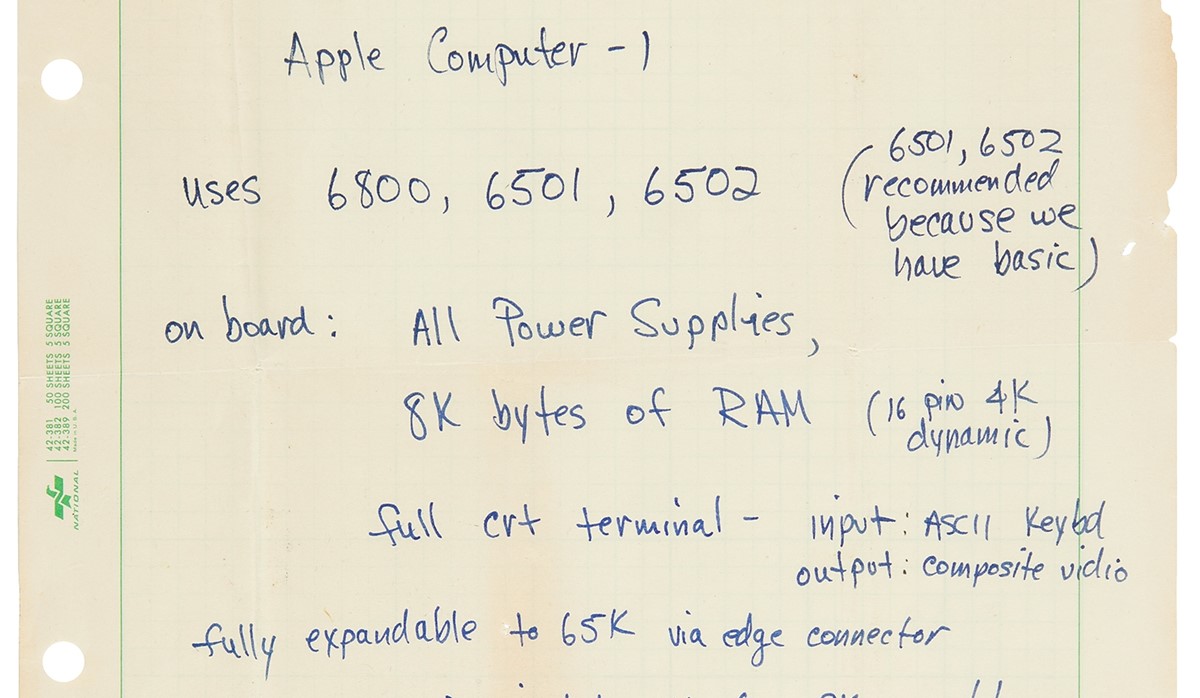 Apple Computer - 1
uses 6800, 6501, 6502 (6501, 6502
recommended
because we
have basic)
on board: All Power Supplies,
8K bytes of RAM (16 pin 4K
dynamic)
full crt terminal - input: ASCII Keybd
output: composite vidio
fully expandable to 65K via edge connector
42-381 50 SHEETS 5 SQUARE
42-382 100 SHEETS 5 SQUARE
42-389 200 SHEETS 5 SQUARE
Made in U.S.A.
NATIONAL